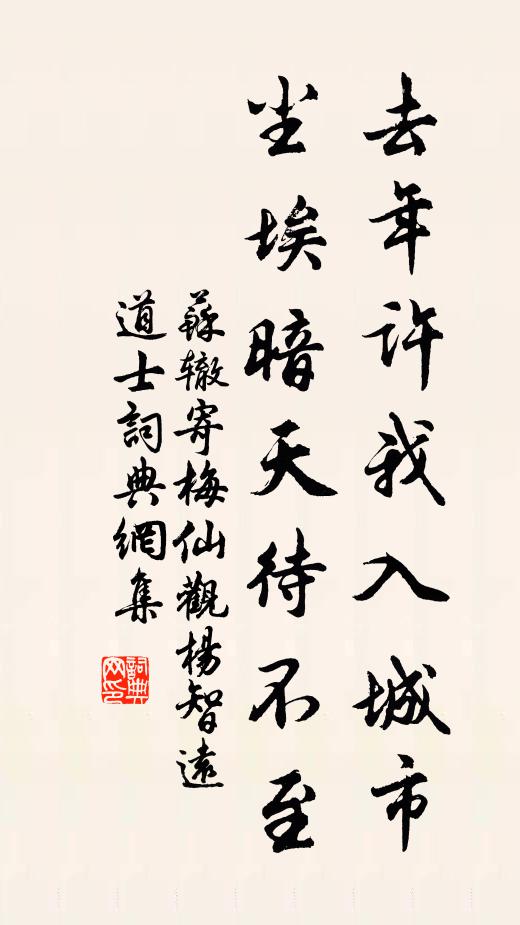 去年许我入城市
尘埃暗天待不至
蘇辙寄梅仙觀楊智遠
道士詞典網集
詞典网印